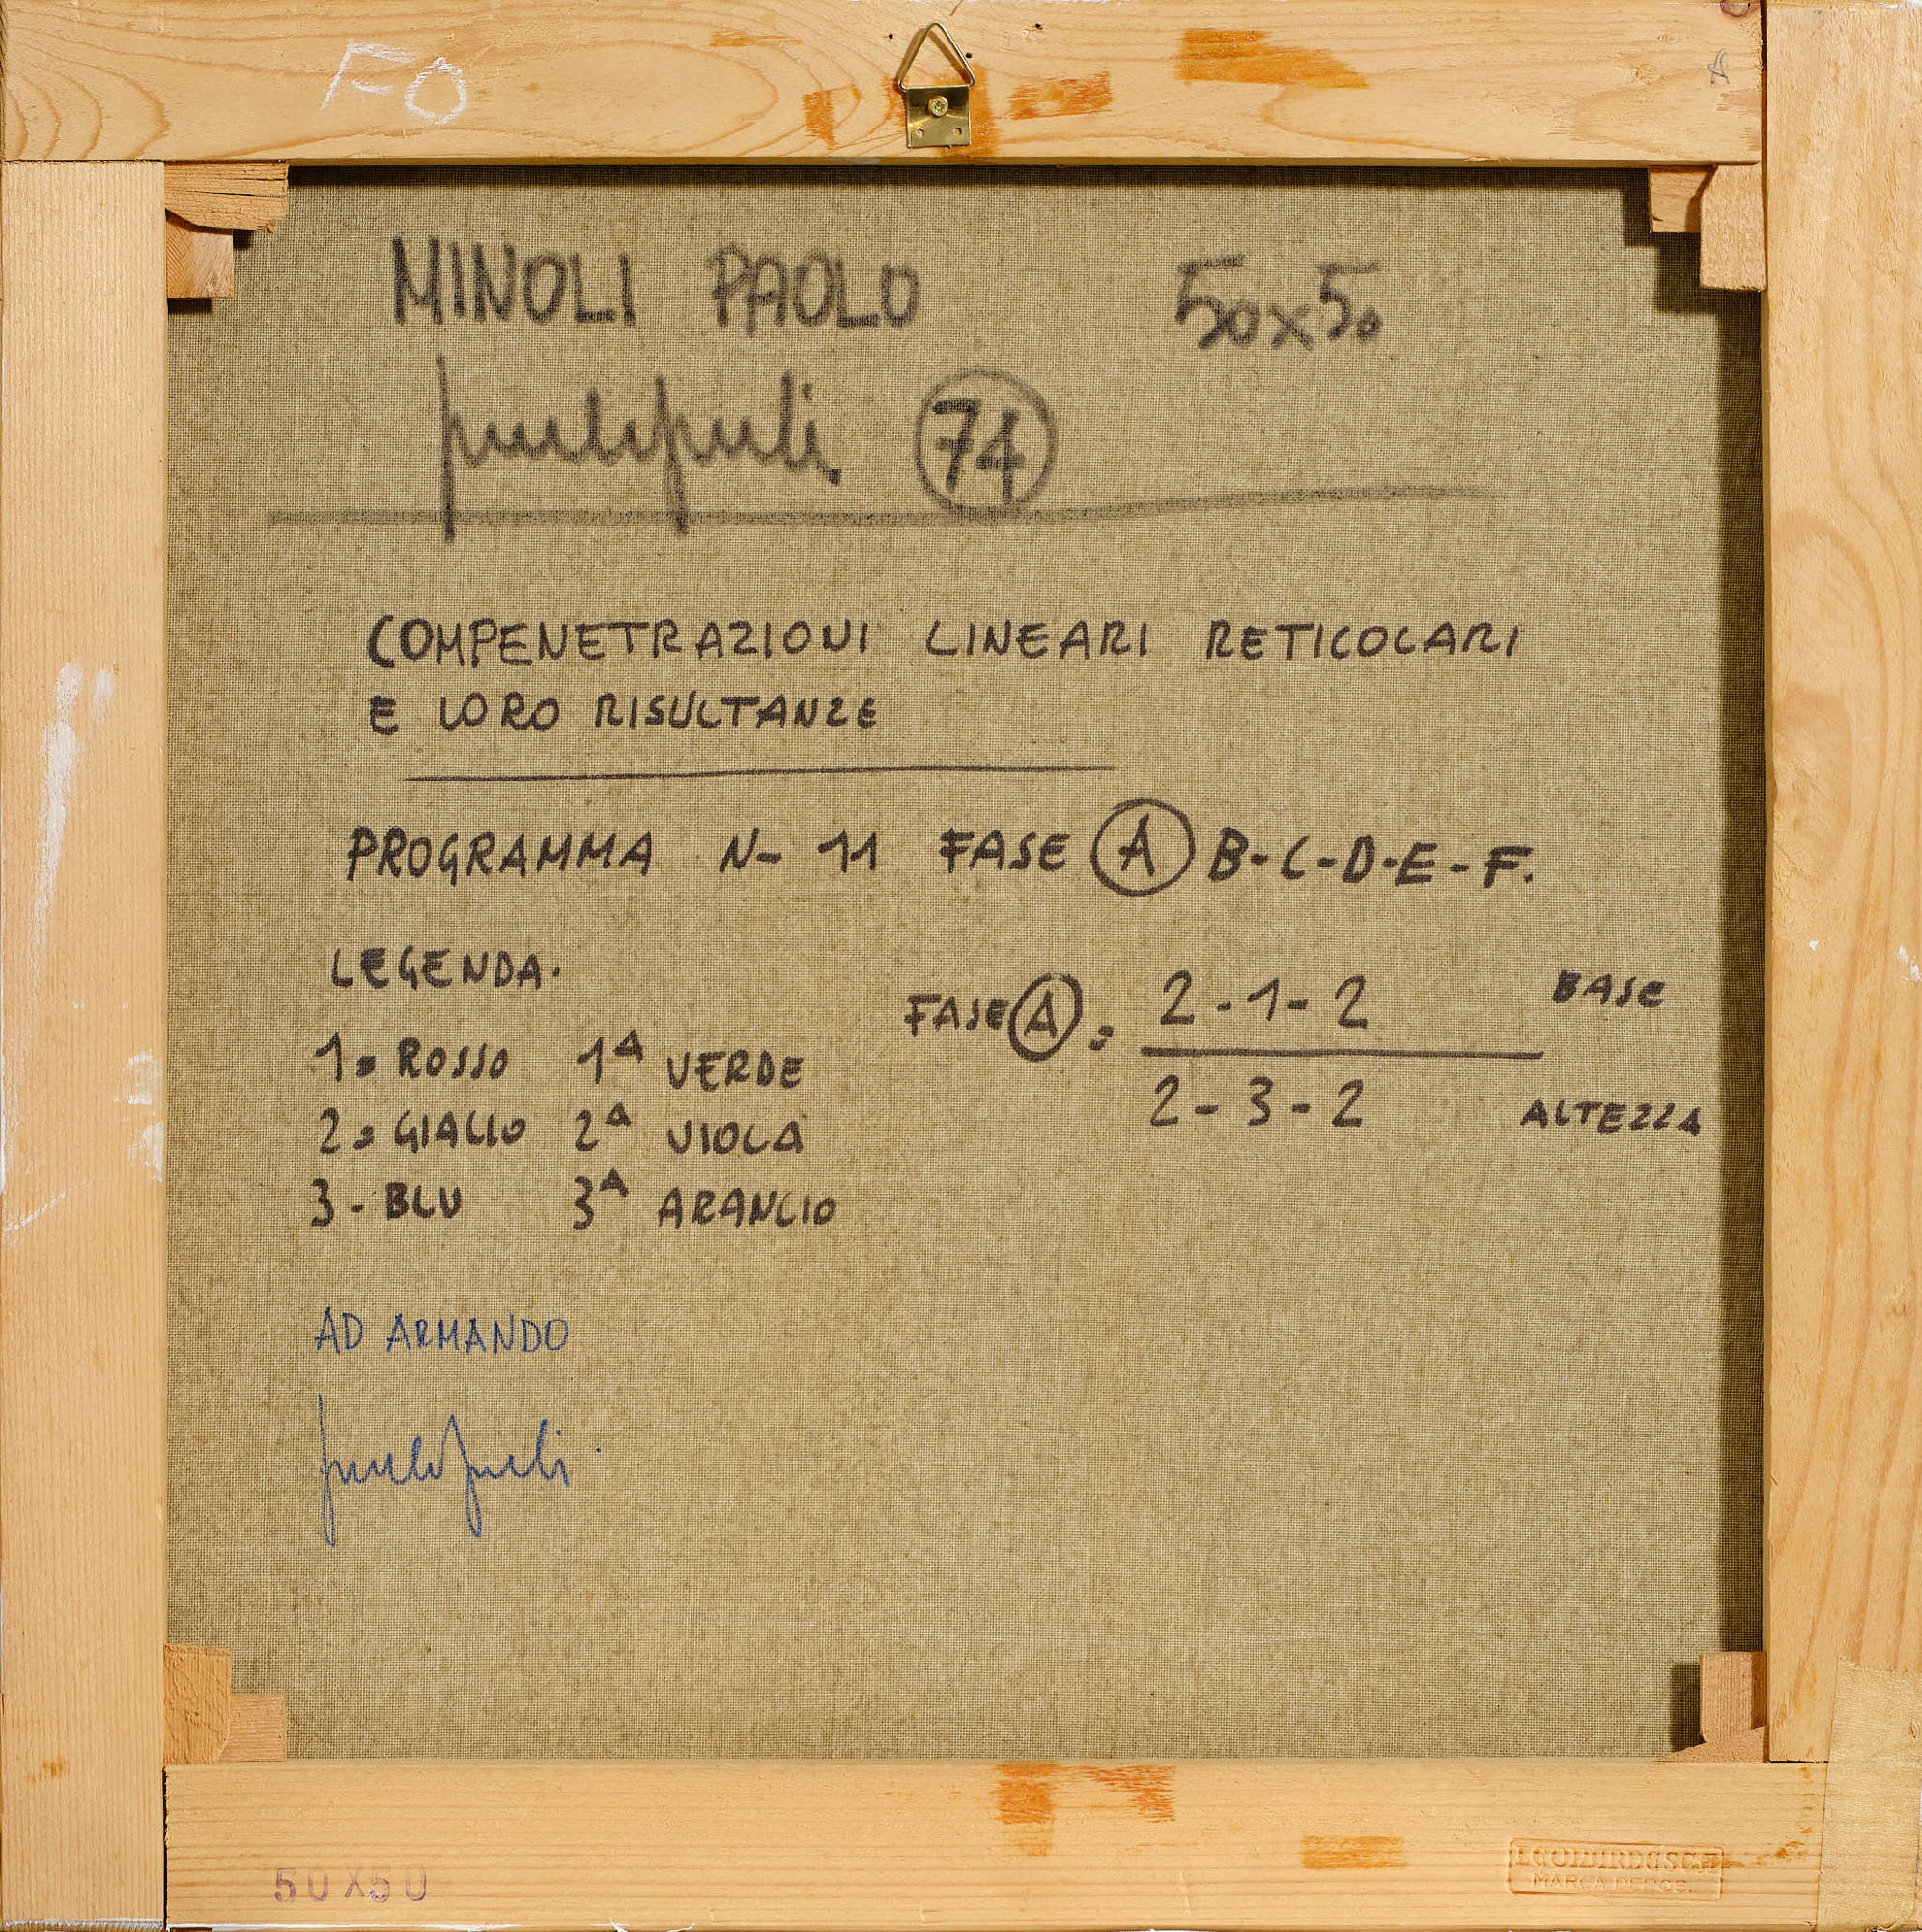 FO
A
MINOLI PAOLO 50x50
74
COMPENETRAZIONI LINEARI RETICOLARI
E LORO RISULTANZE
PROGRAMMA N- 11 FASE A B-C-D-E-F.
LEGENDA.
FASE A = 2-1-2 BASE
2-3-2 ALTEZZA
1= ROSSO 1A VERDE
2= GIALLO 2A VIOLA
3- BLU 3A ARANCIO
AD ARMANDO
50X50
MARCA DEPOS.